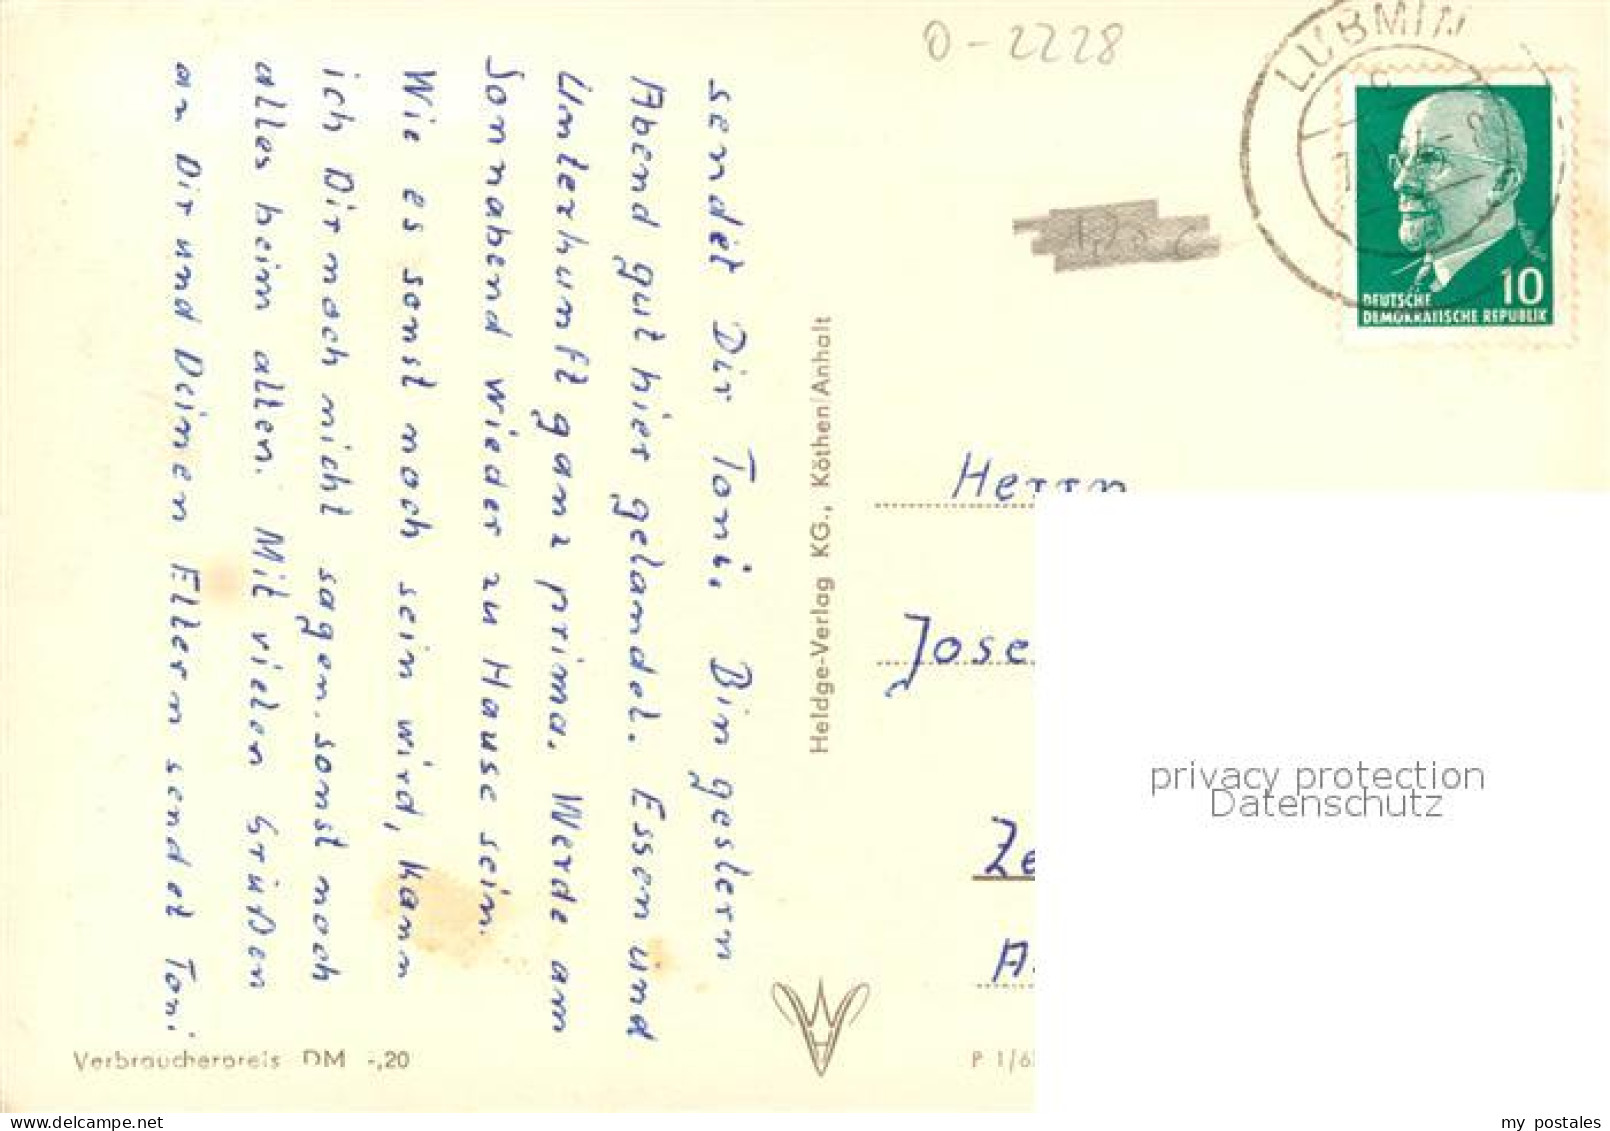 O-2228
LUBMIN
10
DEUTSCHE
DEMOKRATISCHE REPUBLIK
sendet Dir Toni. Bin gestern
Abend gut hier gelandet. Essen und
Unterkunft ganz prima. Werde am
Sonnabend wieder zu Hause sein.
Wie es sonst noch sein wird, kann
ich Dir noch nicht sagen. sonst noch
alles beim alten. Mit vielen Grüßen
an Dir und Deinen Eltern sendet Toni
Heldge-Verlag KG., Köthen/Anhalt
Herrn
Jose
Ze
A
privacy protection
Datenschutz
Verbraucherpreis DM -,20
P 1/6
www.delcampe.net
my postales